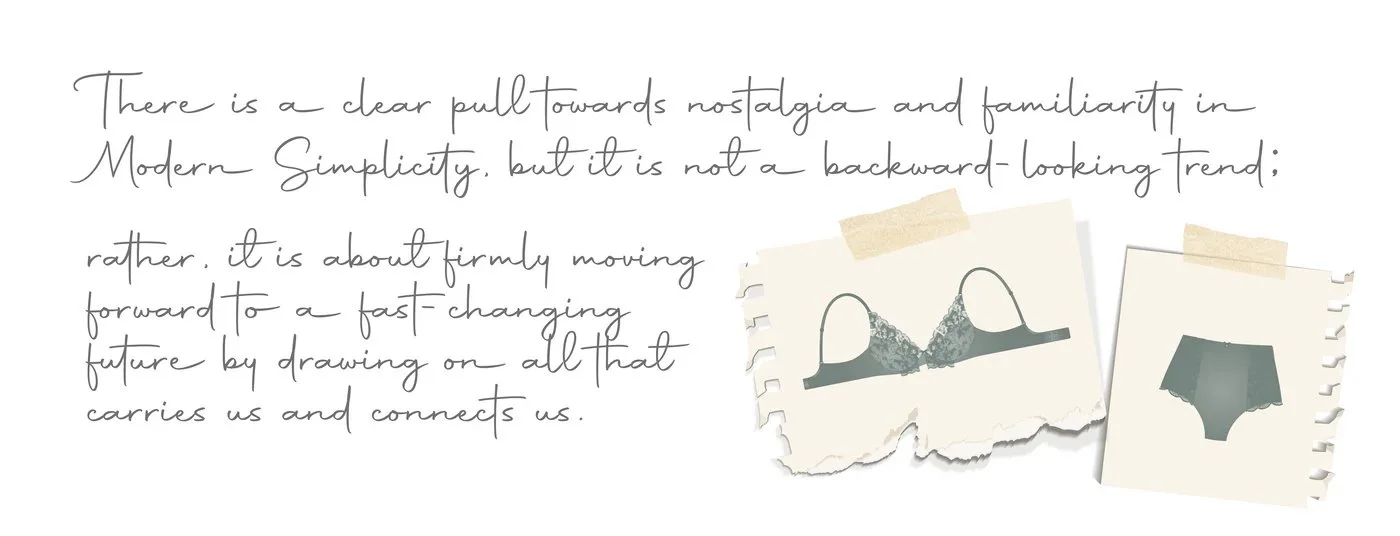 There is a clear pull towards nostalgia and familiarity in
Modern Simplicity, but it is not a backward-looking trend;
rather, it is about firmly moving
forward to a fast-changing
future by drawing on all that
carries us and connects us.